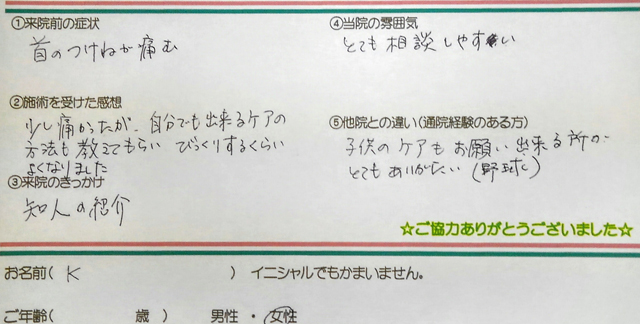 ①来院前の症状
首のつけねが痛む
②施術を受けた感想
少し痛かったが、自分でも出来るケアの
方法も教えてもらい びっくりするくらい
よくなりました
③来院のきっかけ
知人の紹介
④当院の雰囲気
とても相談しやすい
⑤他院との違い(通院経験のある方)
子供のケアもお願い出来る所が
とてもありがたい(野球)
☆ご協力ありがとうございました☆
お名前( K ) イニシャルでもかまいません。
ご年齢( 歳) 男性 ・ 女性